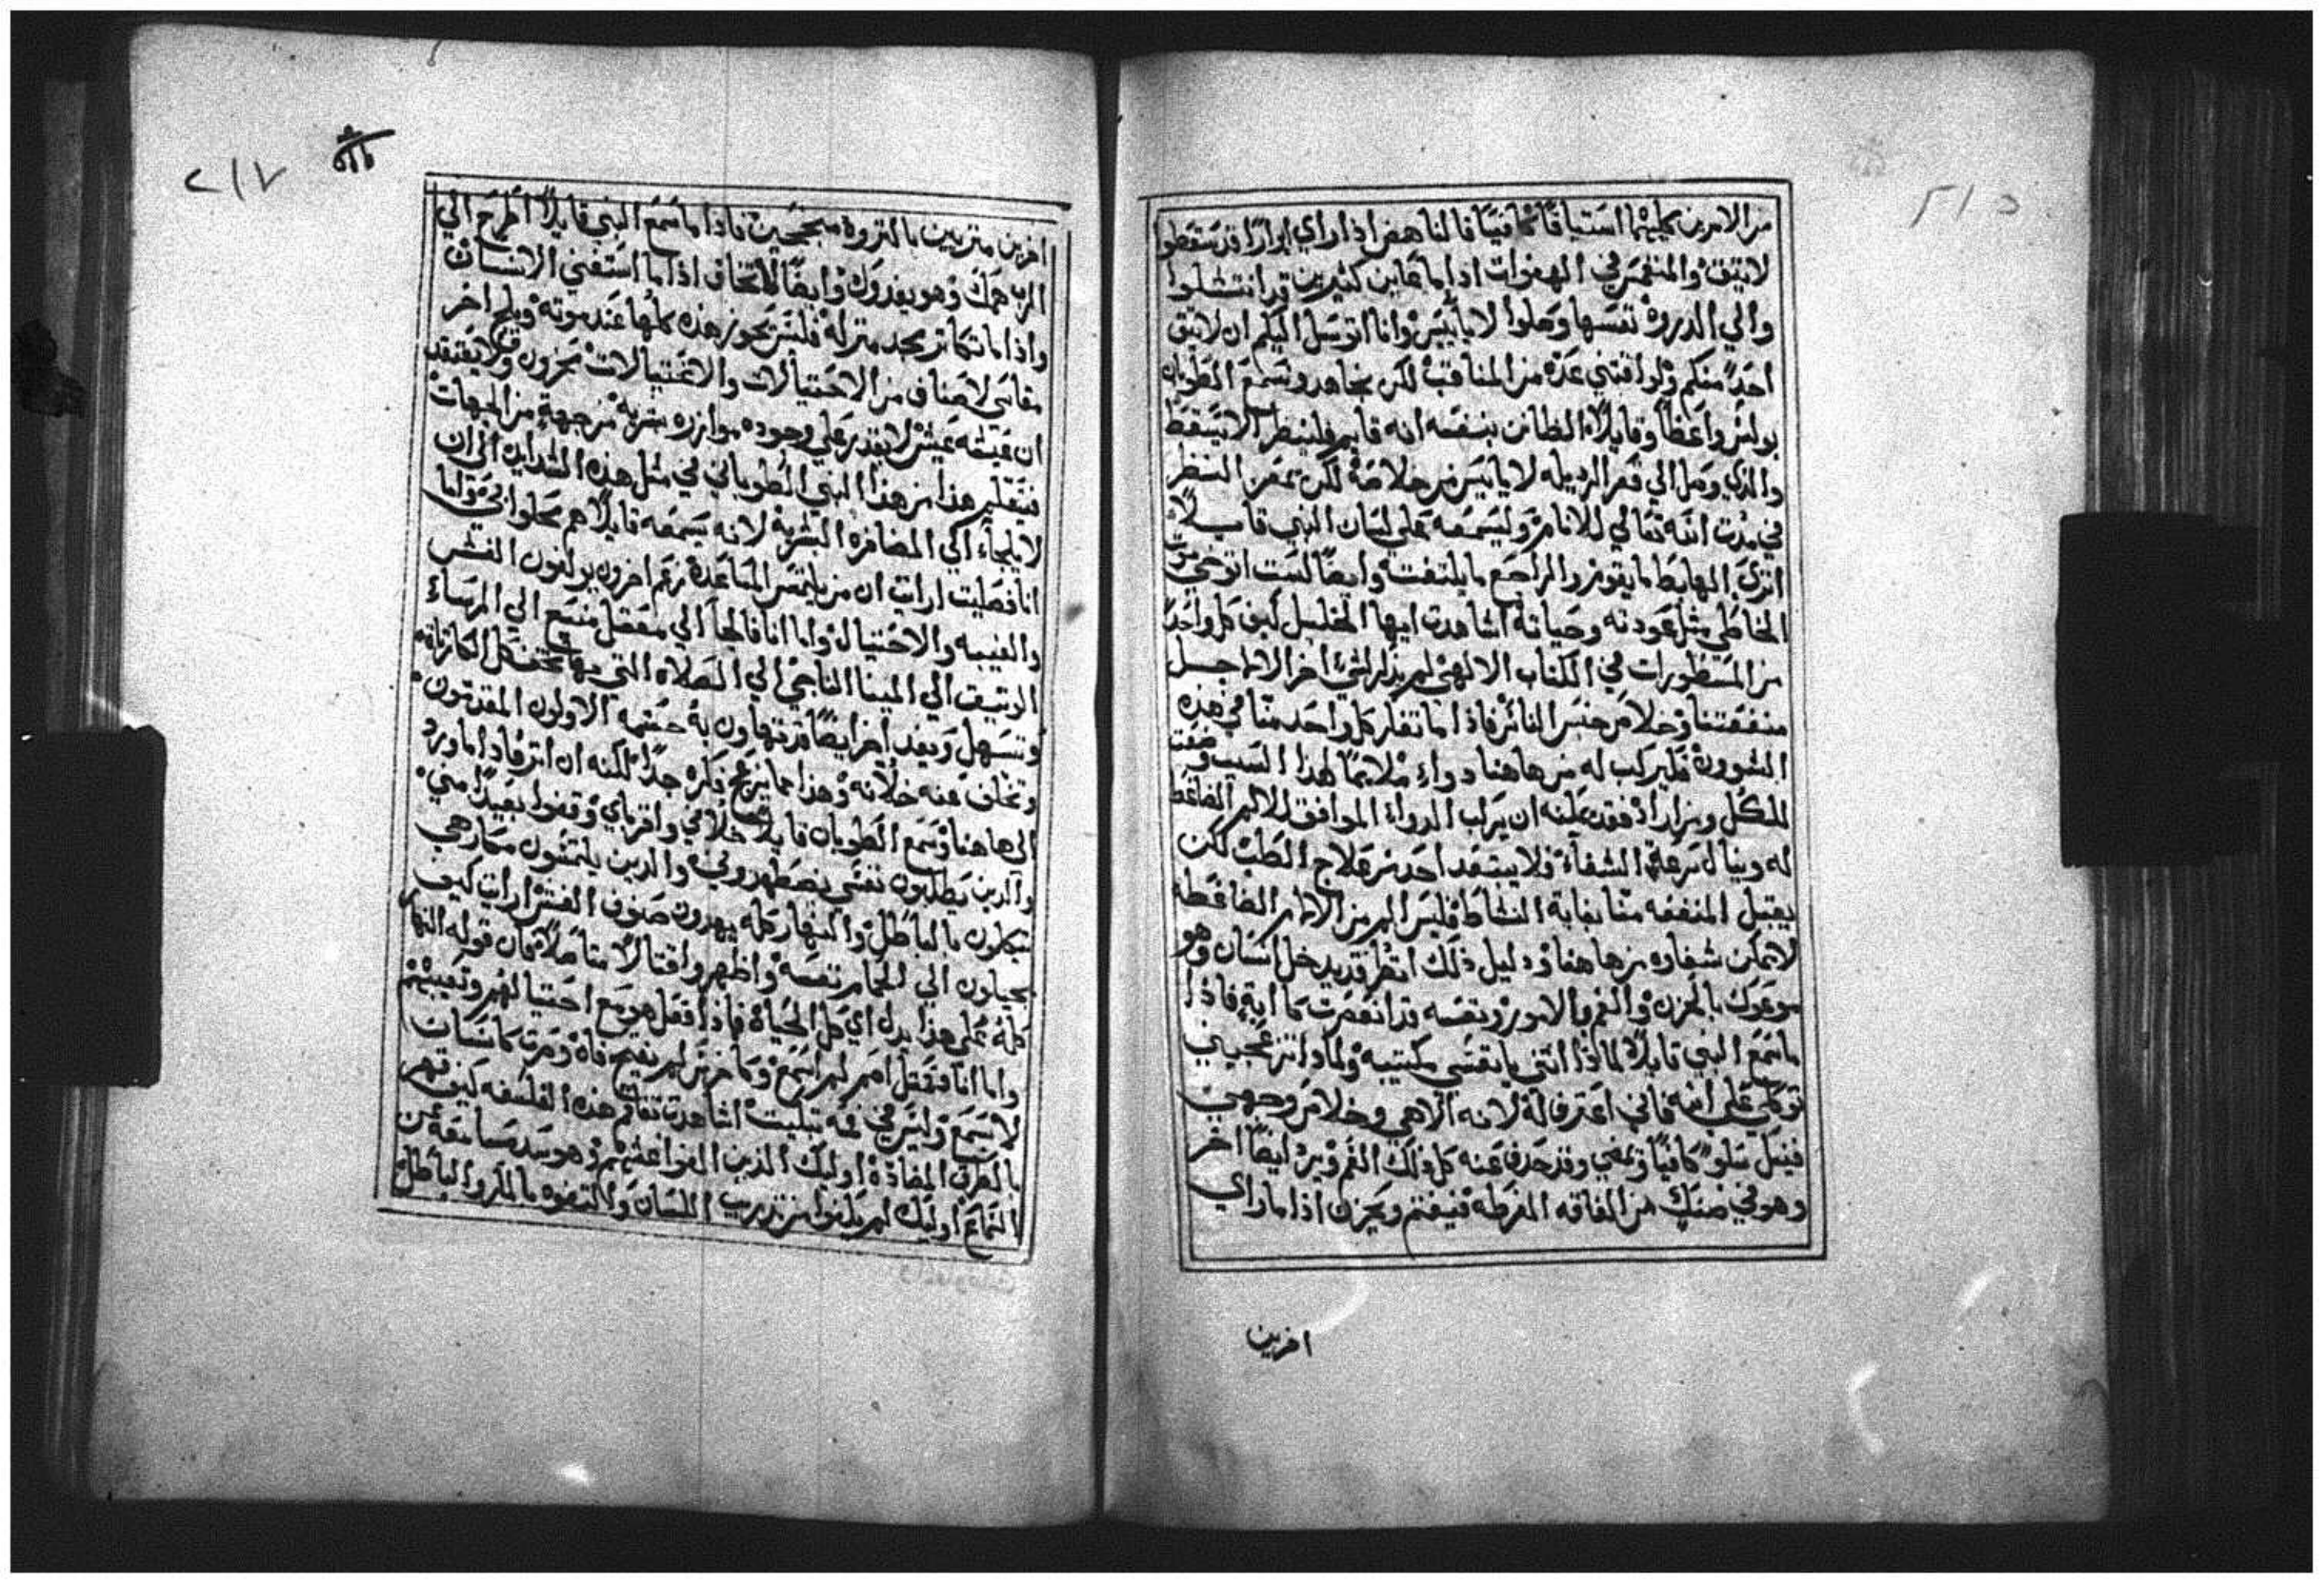 من الامرين كليهما استباقًا كافيًا فالناهض اذا راي ابرارًا قد سقطوا
لا يثق والمنغمس في الهفوات اذا ما عاين كثيرين قد انتشلوا
والي الدروة نفسها وصلوا لا يأييس وانا اتوسل اليكم ان لا يثق
احدًا منكم ولو اقتني عدة من المناقب لكن يجاهد ويسمع الطوبان
بولس واعظًا وقايلًا الظانن بنفسه انه قايم فلينظر الا يسقط
والذي وصل الي قعر الرديله لا يأييس من خلاصة لكن يمعن النظر
في مدت الله تعالي للانام وليسمعه علي لسان النبي قايلًا
اتري الهابط ما يقوم والراجع ما يلتفت وايضًا لست اتوخي موت
الخاطي مثل عودته وحياته اشاهدت ايها الخليل كيف كل واحد
من المسطورات في الكتاب الالهي لم يذكر لشي اخر الا لاجل
منفعتنا وخلاص جنس الناس فاذا ما تفكر كل واحد منا في هذه
المشورة فليركب له من هاهنا دواء ملايمًا لهذا السبب وضعت
للكل ومن اراد فقد يمكنه ان يركب الدواء الموافق للالم الضاغط
له وينال سرعة الشفآء فلا يبتعد احد من علاج الطب لكن
يقتبل المنفعه منا بغاية النشاط فليس الم من الالام الضاغطه
لا يمكن شفاوه من هاهنا ودليل ذلك انه قد يدخل انسان وهو
موعوك بالحزن والغم بالامور ونفسه قد انغمرت كابة فاذا
ما سمع النبي قايلًا لماذا انتي يا نفسي مكتيبه ولماذا تنزعجيني
توكلي علي الله فاني اعترف له لانه الاهي وخلاص وجهي
فينل سلوًا كافيًا ويمضي وقد حدف عنه كل ذلك الغم ويرد ايضًا اخر
وهو في ضنك من الفاقه المفرطه فيغتم ويحزن اذا ما راي
اخرين
٢١٧
اخرين مترببين بالثروة مبجحين فاذا ما سمع النبي قايلًا اطرح الي
الرب همك وهو يغدوك وايضًا لا تخاف اذا ما استغني الانسان
واذا ما تكاثر مجد منزله فليس يحوز هذه كلها عند موته ويلج اخر
مقاسي لاصناف من الاحتيالات والاغتيالات محزون ولا يعتقد
ان عيشه عيش لا يقدر علي وجوده موازره بشريه من جهة من الجهات
فيتعلم هذا من هذا النبي الطوباني في مثل هذه الشدايد الي ان
لا يلجأ الي المضافره البشرية لانه يسمعه قايلًا هم محلوا بي واما
انا فصليت ارايت ان من يلتمس المساعدة نعم اخرون يولفون الغش
والغيبه والاحتيال واما انا فالجأ الي معقل منيع الي المرساء
الوثيق الي المينا الناجي الي الصلاه التي بها تخف كل الكارثات
وتتسهل ويفد اخر ايضًا قد تهاون به حشمه الاولون المقدمون
وتخلف عنه خلانه وهذا مما يزعج فكره جدًا لكنه ان اتر فاذا ما ورد
الي هاهنا وسمع الطوبان قايلًا خلاني واقرباي وقفوا بعيدًا مني
والدين يطلبون نفسي يضطهدوني والدين يلتمسون مكارهي
يتكلمون بالباطل والنهار كله يهدون صنوف الغش ارايت كيف
يحيلون الي الحمام نفسه واظهروا قتالًا متاصلًا كأن قوله النهار
كله علي هذا يدل اي كل الحياة فاذا فعل هو مع احتيالهم وتعيبهم
واما انا فمثل اصم لم اسمع وكاخرس لم يفتح فاه وصرت كانسان
لا يسمع وليس في فمه تبكيت اشاهدت تفاقم هذه الفلسفه كيف قهر
بالطرق المضادة اوليك الذين الفوا غشهم وهو سد مسامعه عن
السماع اوليك لم يكفوا من تدريب اللسان والتفوه بالمكر والباطل